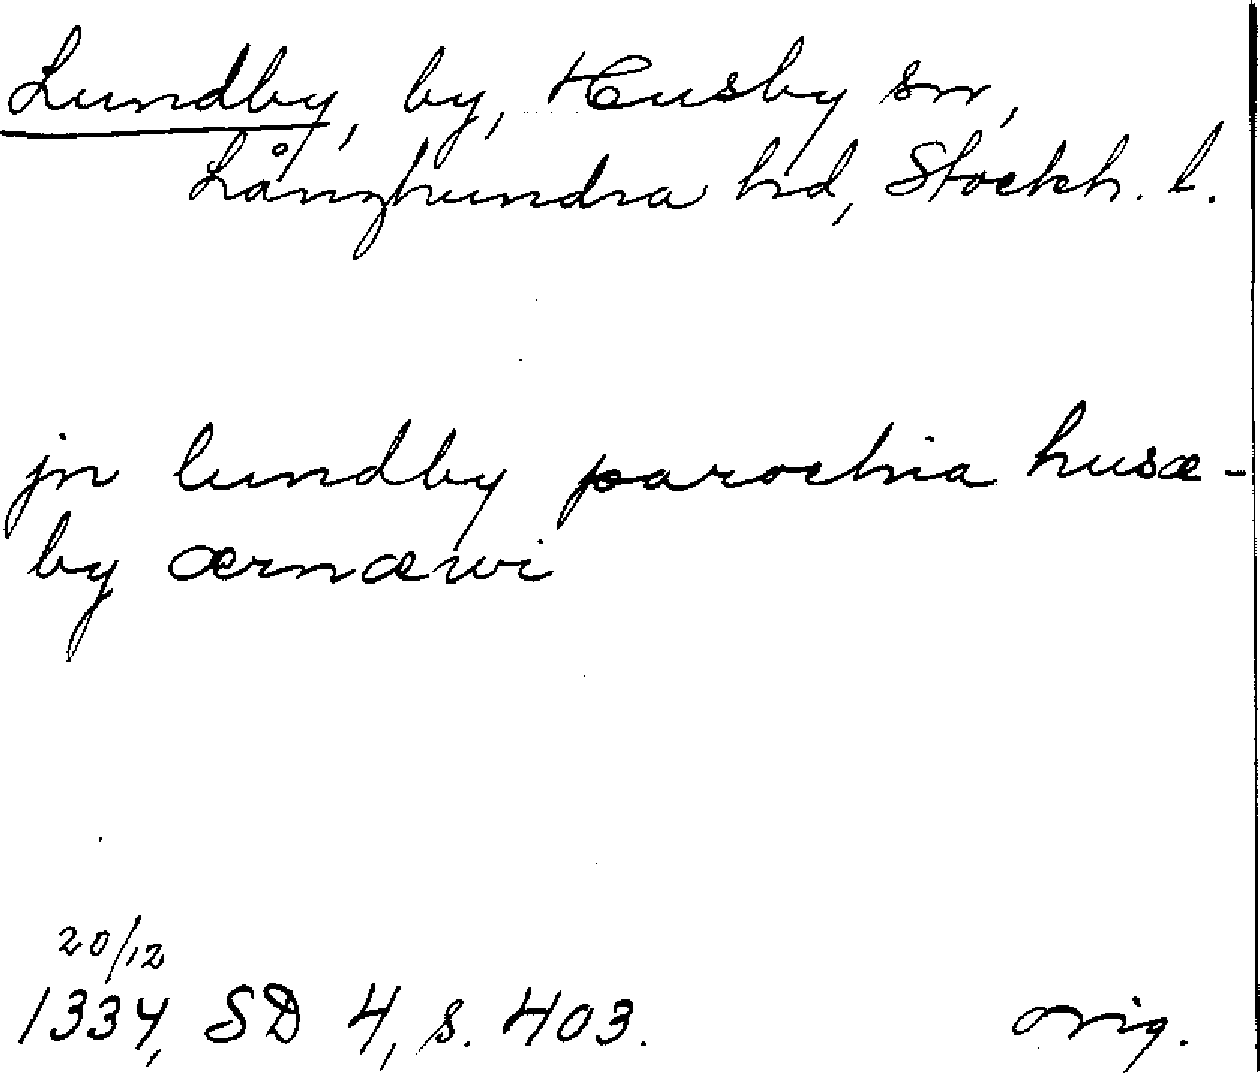 Lundby, by, Husby sn,
Långhundra hd, Stockh. l.
jn lundby parochia husæ-
by ærnæwi
20/12
1334, SD 4, s. 403. orig.